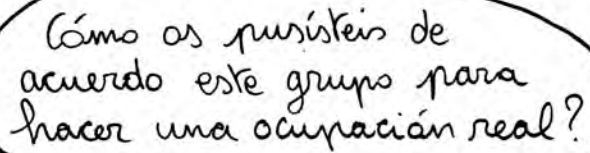 Cómo os pusísteis de
acuerdo este grupo para
hacer una ocupación real?